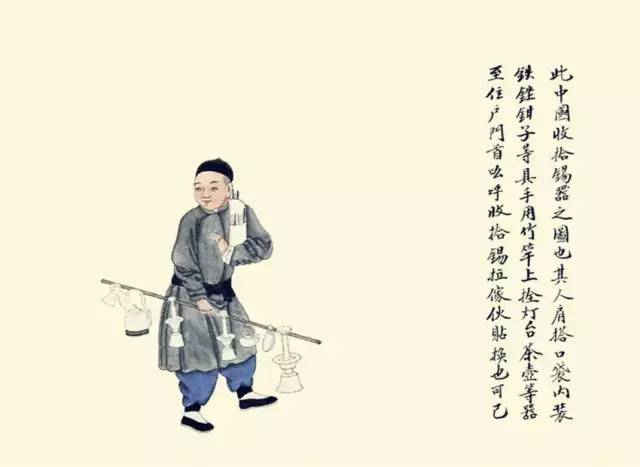 此中國收拾錫器之圖也其人肩搭口袋內裝
鉄銼鉗子等具手用竹竿上拴灯台茶壺等器
至住戶門首吆呼收拾錫拉傢伙貼換也可已